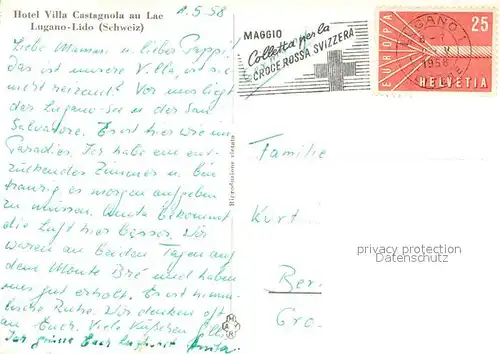 Hotel Villa Castagnola au Lac
Lugano-Lido (Schweiz)
1.5.58
Liebe Mamma u. lieber Pappi!
Das ist unsere Villa, ist sie
nicht reizend? Vor uns liegt
der Lugano-See u. der San
Salvatore. Es ist hier wie im
Paradies. Ich habe ein ent-
zückendes Zimmer u. bin
traurig es morgen aufgeben
zu müssen. Anita bekommt
die Luft hier besser. Wir
waren an beiden Tagen auf
dem Monte Bré und haben
uns gut erholt. Es ist himm-
lische Ruhe. Wir denken oft
an Euch. Viele Küsschen
Ich grüsse Euch Anita
Riproduzione vietata
MAGGIO
Colletta per la
CROCE ROSSA SVIZZERA
LUGANO 1
1958
EUROPA
25
HELVETIA
Familie
Kurt
Ber
privacy protection
Datenschutz